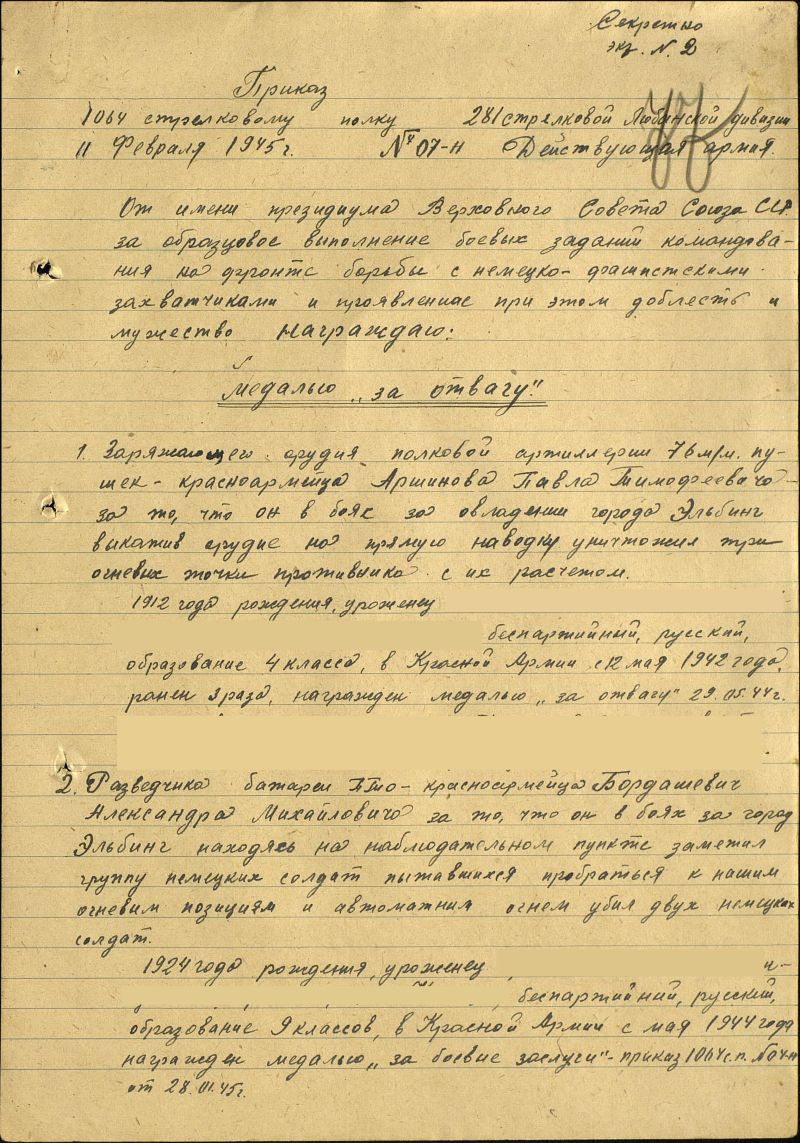 Секретно
экз. N. 2
77
Приказ
1064 стрелковому полку 281 стрелковой Любанской дивизии
11 Февраля 1945г. № 07-н Действующая армия.
От имени президиума Верховного Совета Союза ССР
за образцовое выполнение боевых заданий командова-
ния на фронте борьбы с немецко-фашистскими
захватчиками и проявление при этом доблесть и
мужество награждаю:
медалью „за отвагу".
1. Заряжающего орудия полковой артиллерии 76 м/м. пу-
шек - красноармейца Аршинова Павла Тимофеевича -
за то, что он в боях за овладении города Эльбинг
выкатив орудие на прямую наводку уничтожил три
огневых точки противника с их расчетом.
1912 года рождения, уроженец
беспартийный, русский,
образование 4 класса, в Красной Армии с 12 мая 1942 года,
ранен 3 раза, награжден медалью „за отвагу" 29.05.44г.
2. Разведчика батареи ПТО - красноармейца Бордашевич
Александра Михайловича за то, что он в боях за город
Эльбинг находясь на наблюдательном пункте заметил
группу немецких солдат пытавшихся пробраться к нашим
огневим позициям и автоматним огнем убил двух немецких
солдат.
1924 года рождения, уроженец
беспартийний, русский,
образование 9 классов, в Красной Армии с мая 1944 года
награжден медалью „за боевие заслуги" - приказ 1064 с.п. №04-н
от 28.01.45г.